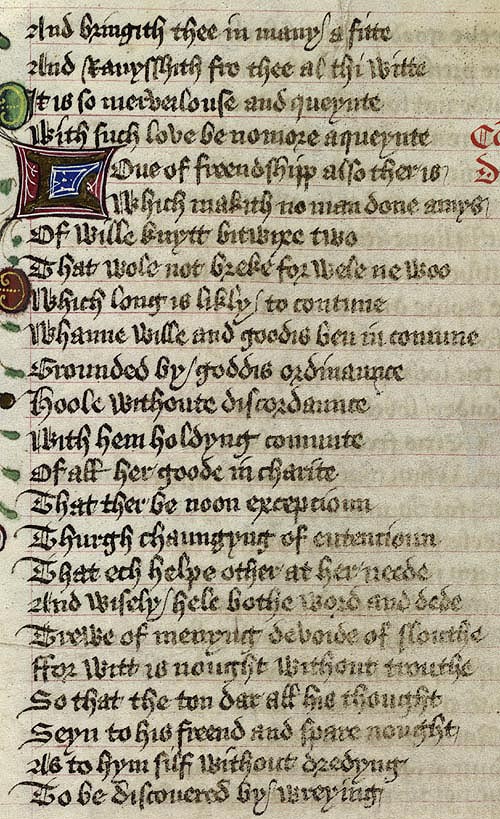 And bringith thee in many a fitte
And Rauysshith fro thee al thi witte
It is so merveilouse and queynte
With such love be nomore aqueynte
Loue of freendshipp also ther is
Which makith no man done amys
Of wille knytt bitwixe two
That wole not breke for wele ne woo
Which long is likly to contune
Whanne wille and goodis ben in comune
Grounded by goddis ordinaunce
Hoole withoute discordaunce
With hem holdyng comunte
Of all her goode in charite
That ther be noon excepcioun
Thurgh chaungyng of entencioun
That ech helpe other at her neede
And wisely hele bothe word and dede
Trewe of menyng devoide of slouthe
ffor witt is nought without trouthe
So that the ton dar all his thought
Seyn to his freend and spare nought
As to hym silf without dredyng
To be discouered by wreying